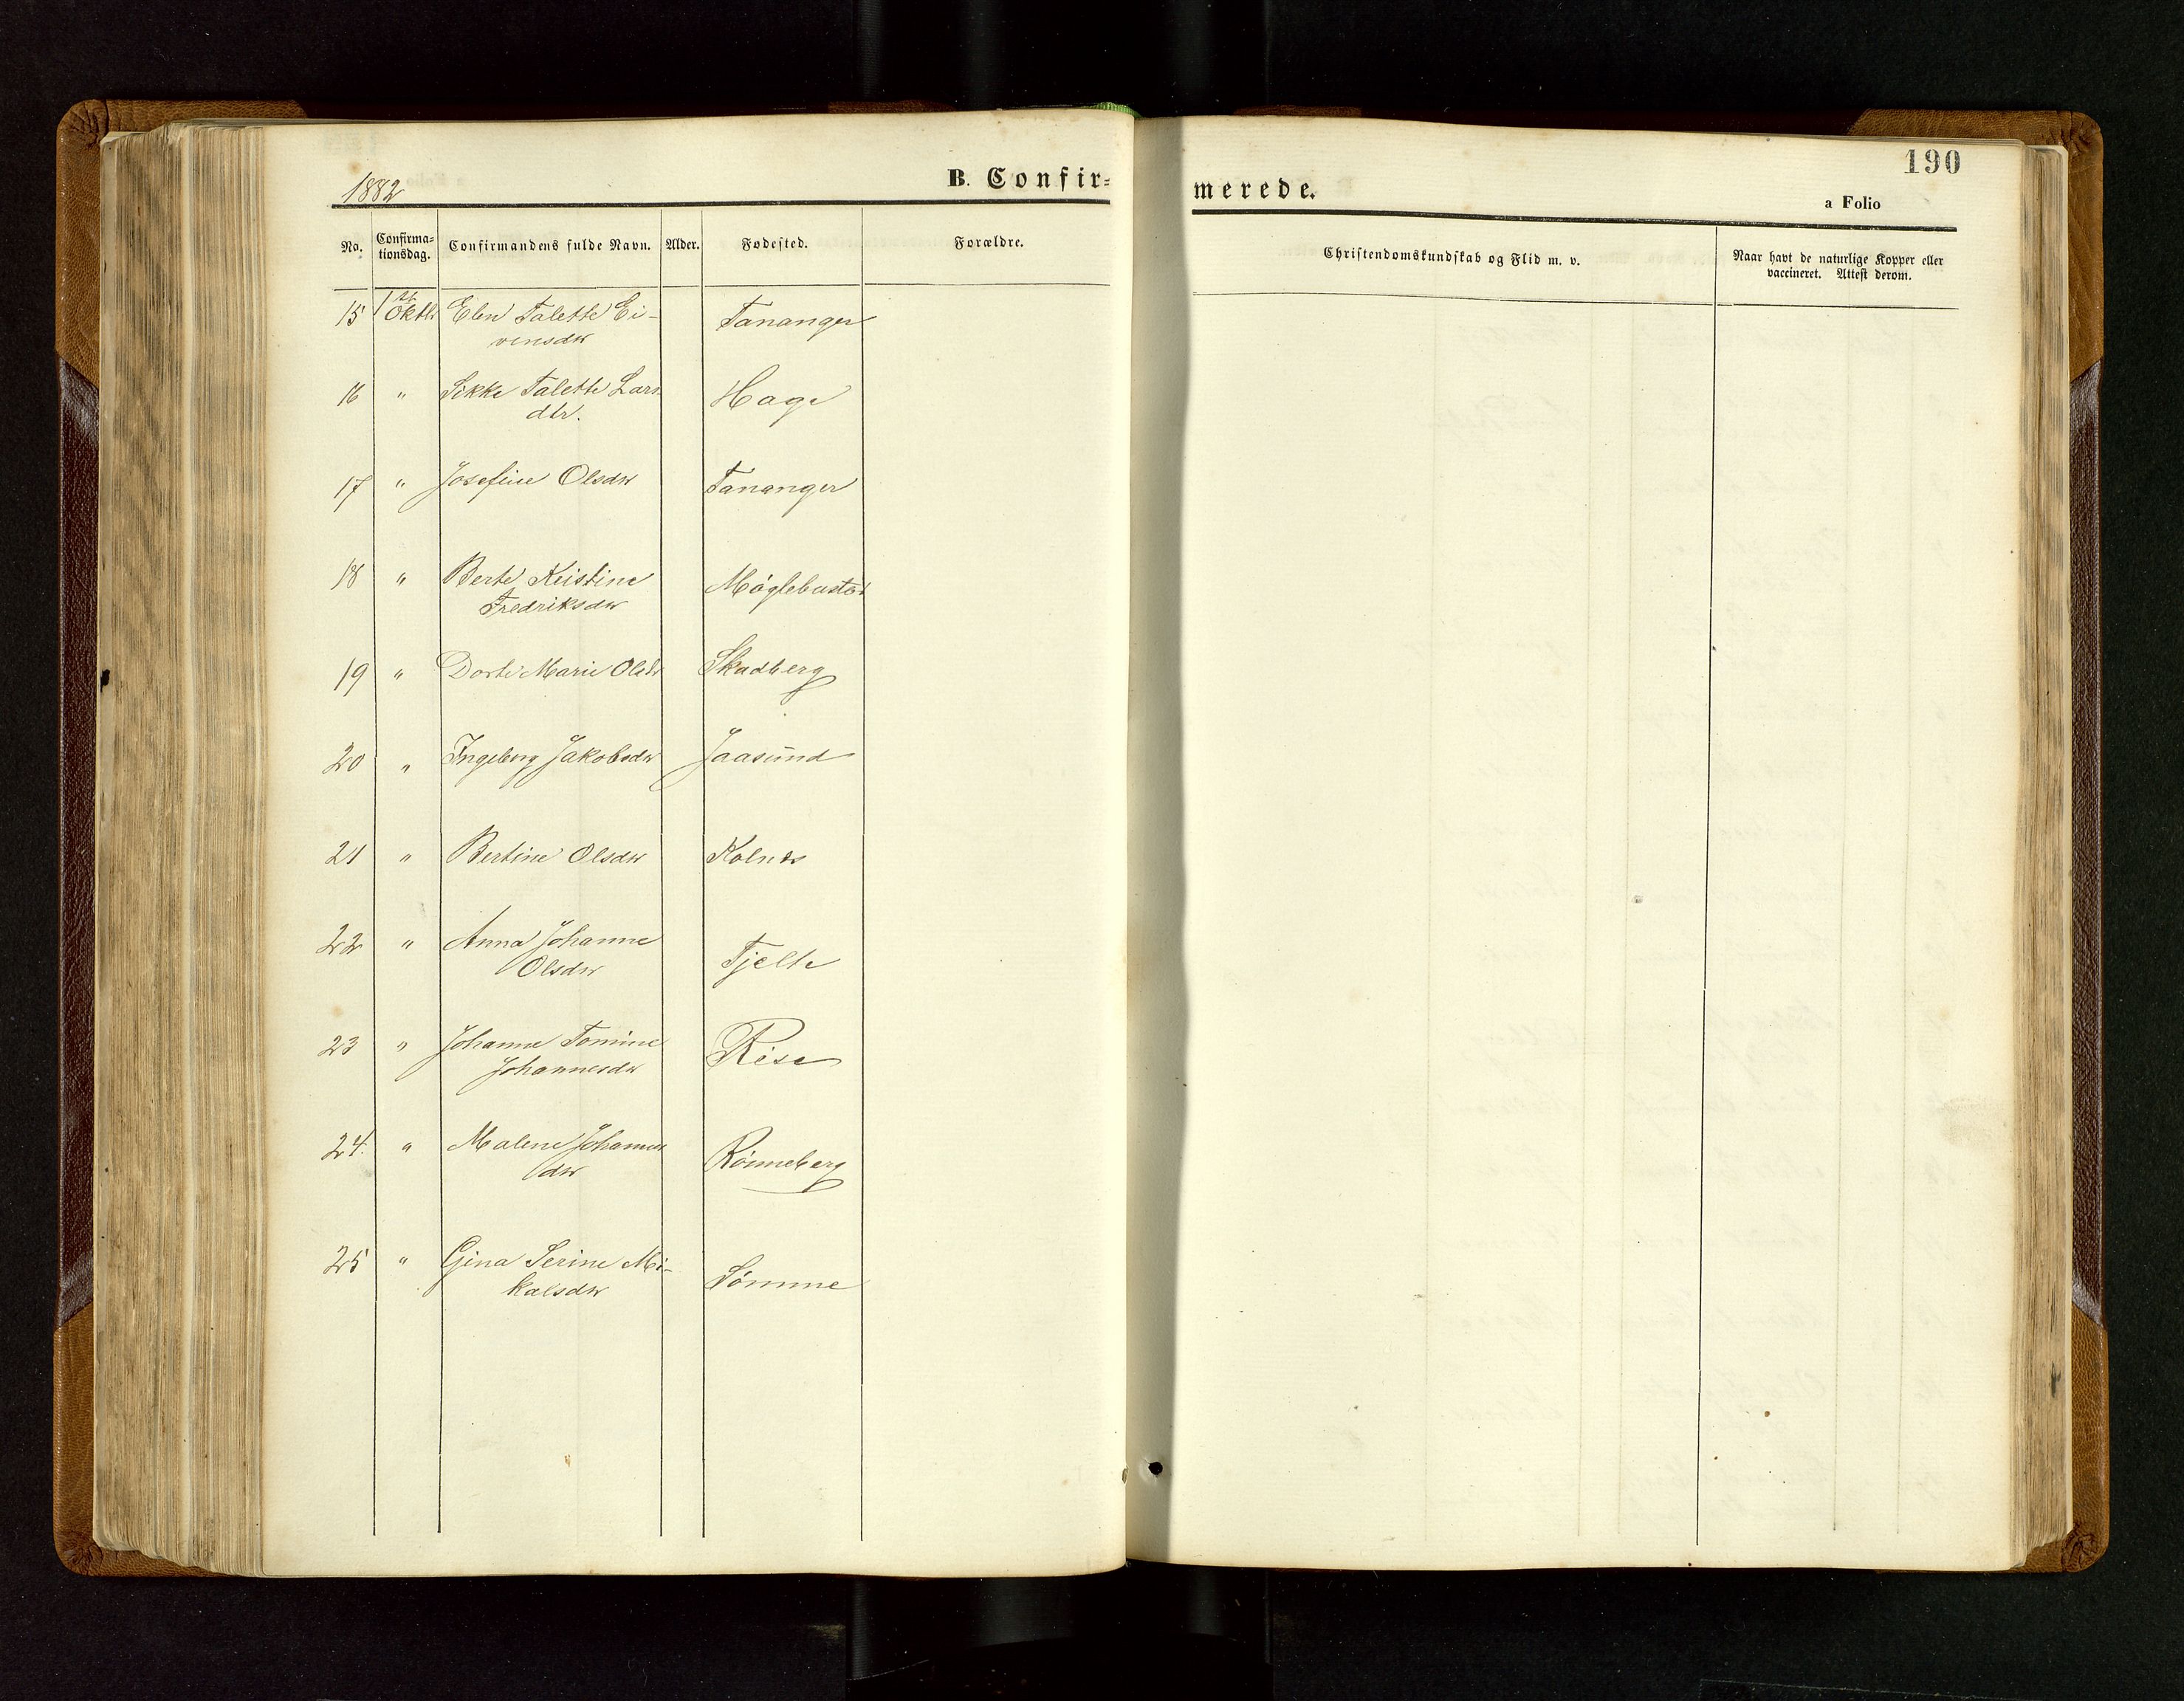 190
1882
B. Confir-
merede.
a Folio
No.
Confirma-
tionsdag.
Confirmandens fulde Navn.
Alder.
Fødested.
Forældre.
Christendomskundskab og Flid m. v.
Naar havt de naturlige Kopper eller
vaccineret. Attest derom.
15 1ste Oktbr Elen Talette Ei- Tananger
vensdtr
16 " Sikke Talette Lars Hage
dtr.
17 " Josefine Olsdtr Tananger
18 " Berte Kristine Møglebustad
Fredriksdtr
19 " Dorte Marie Olsdtr Skadberg
20 " Ingeborg Jakobsdtr Jaasund
21 " Bertine Olsdtr Kolnes
22 " Anna Johanne Tjelte
Olsdtr
23 " Johanne Tomine Risa
Johannesdtr
24. " Malene Johannes Rønneberg
dtr
25 " Gina Serine Mi- Sømme
kalsdtr